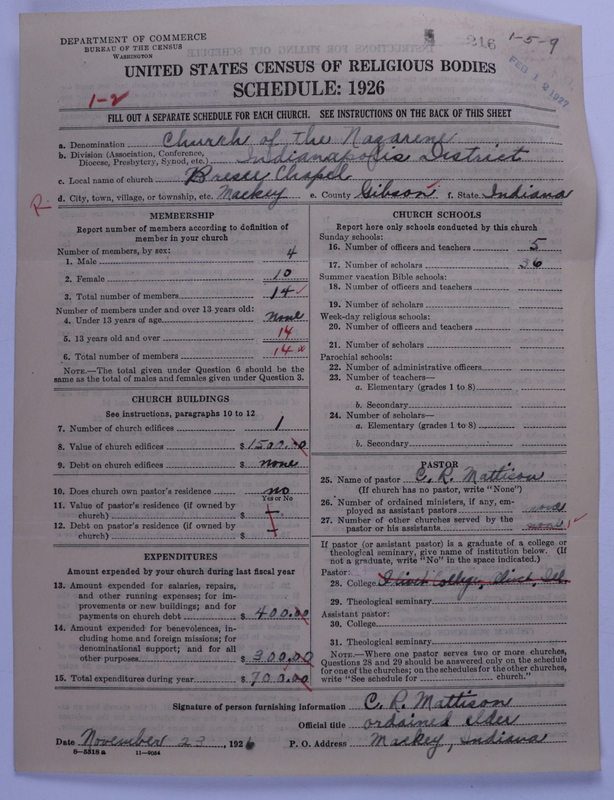 DEPARTMENT OF COMMERCE
BUREAU OF THE CENSUS
WASHINGTON
216
1-5-9
FEB 1 2 1927
UNITED STATES CENSUS OF RELIGIOUS BODIES
SCHEDULE: 1926
1-2
FILL OUT A SEPARATE SCHEDULE FOR EACH CHURCH. SEE INSTRUCTIONS ON THE BACK OF THIS SHEET
a. Denomination Church of the Nazarene
b. Division (Association, Conference, Diocese, Presbytery, Synod, etc.) Indianapolis District
c. Local name of church Chapel
R. d. City, town, village, or township, etc. Mackey e. County Gibson f. State Indiana
MEMBERSHIP
Report number of members according to definition of
member in your church
Number of members, by sex:
1. Male 4
2. Female 10
3. Total number of members 14
Number of members under and over 13 years old:
4. Under 13 years of age none
5. 13 years old and over 14
6. Total number of members 14
NOTE.—The total given under Question 6 should be
same as the total of males and females given under Question 3.
CHURCH BUILDINGS
See instructions, paragraphs 10 to 12
7. Number of church edifices 1
8. Value of church edifices $1500.00
9. Debt on church edifices $ none
10. Does church own pastor's residence no
Yes or No
11. Value of pastor's residence (if owned by
church) $ -
12. Debt on pastor's residence (if owned by
church) $ -
EXPENDITURES
Amount expended by your church during last fiscal year
13. Amount expended for salaries, repairs,
and other running expenses; for im-
provements or new buildings; and for
payments on church debt $ 400.00
14. Amount expended for benevolences, in-
cluding home and foreign missions; for
denominational support; and for all
other purposes $ 300.00
15. Total expenditures during year $ 700.00
CHURCH SCHOOLS
Report here only schools conducted by this church
Sunday schools:
16. Number of officers and teachers 5
17. Number of scholars 36
Summer vacation Bible schools:
18. Number of officers and teachers
19. Number of scholars
Week-day religious schools:
20. Number of officers and teachers
21. Number of scholars
Parochial schools:
22. Number of administrative officers
23. Number of teachers—
a. Elementary (grades 1 to 8)
b. Secondary
24. Number of scholars—
a. Elementary (grades 1 to 8)
b. Secondary
PASTOR
25. Name of pastor C. R. Mattison
(If church has no pastor, write "None")
26. Number of ordained ministers, if any, em-
ployed as assistant pastors none
27. Number of other churches served by the
pastor or his assistants none
If pastor (or assistant pastor) is a graduate of a college or
theological seminary, give name of institution below. (If
not a graduate, write "No" in the space indicated.)
Pastor:
28. College College,
29. Theological seminary
Assistant pastor:
30. College
31. Theological seminary
NOTE.—Where one pastor serves two or more churches,
Questions 28 and 29 should be answered only on the schedule
for one of the churches; on the schedules for the other churches,
write "See schedule for church."
Signature of person furnishing information C. R. Mattison
Official title ordained elder
Date November 23, 1926 P. O. Address Mackey, Indiana
8-5518a 11-9024